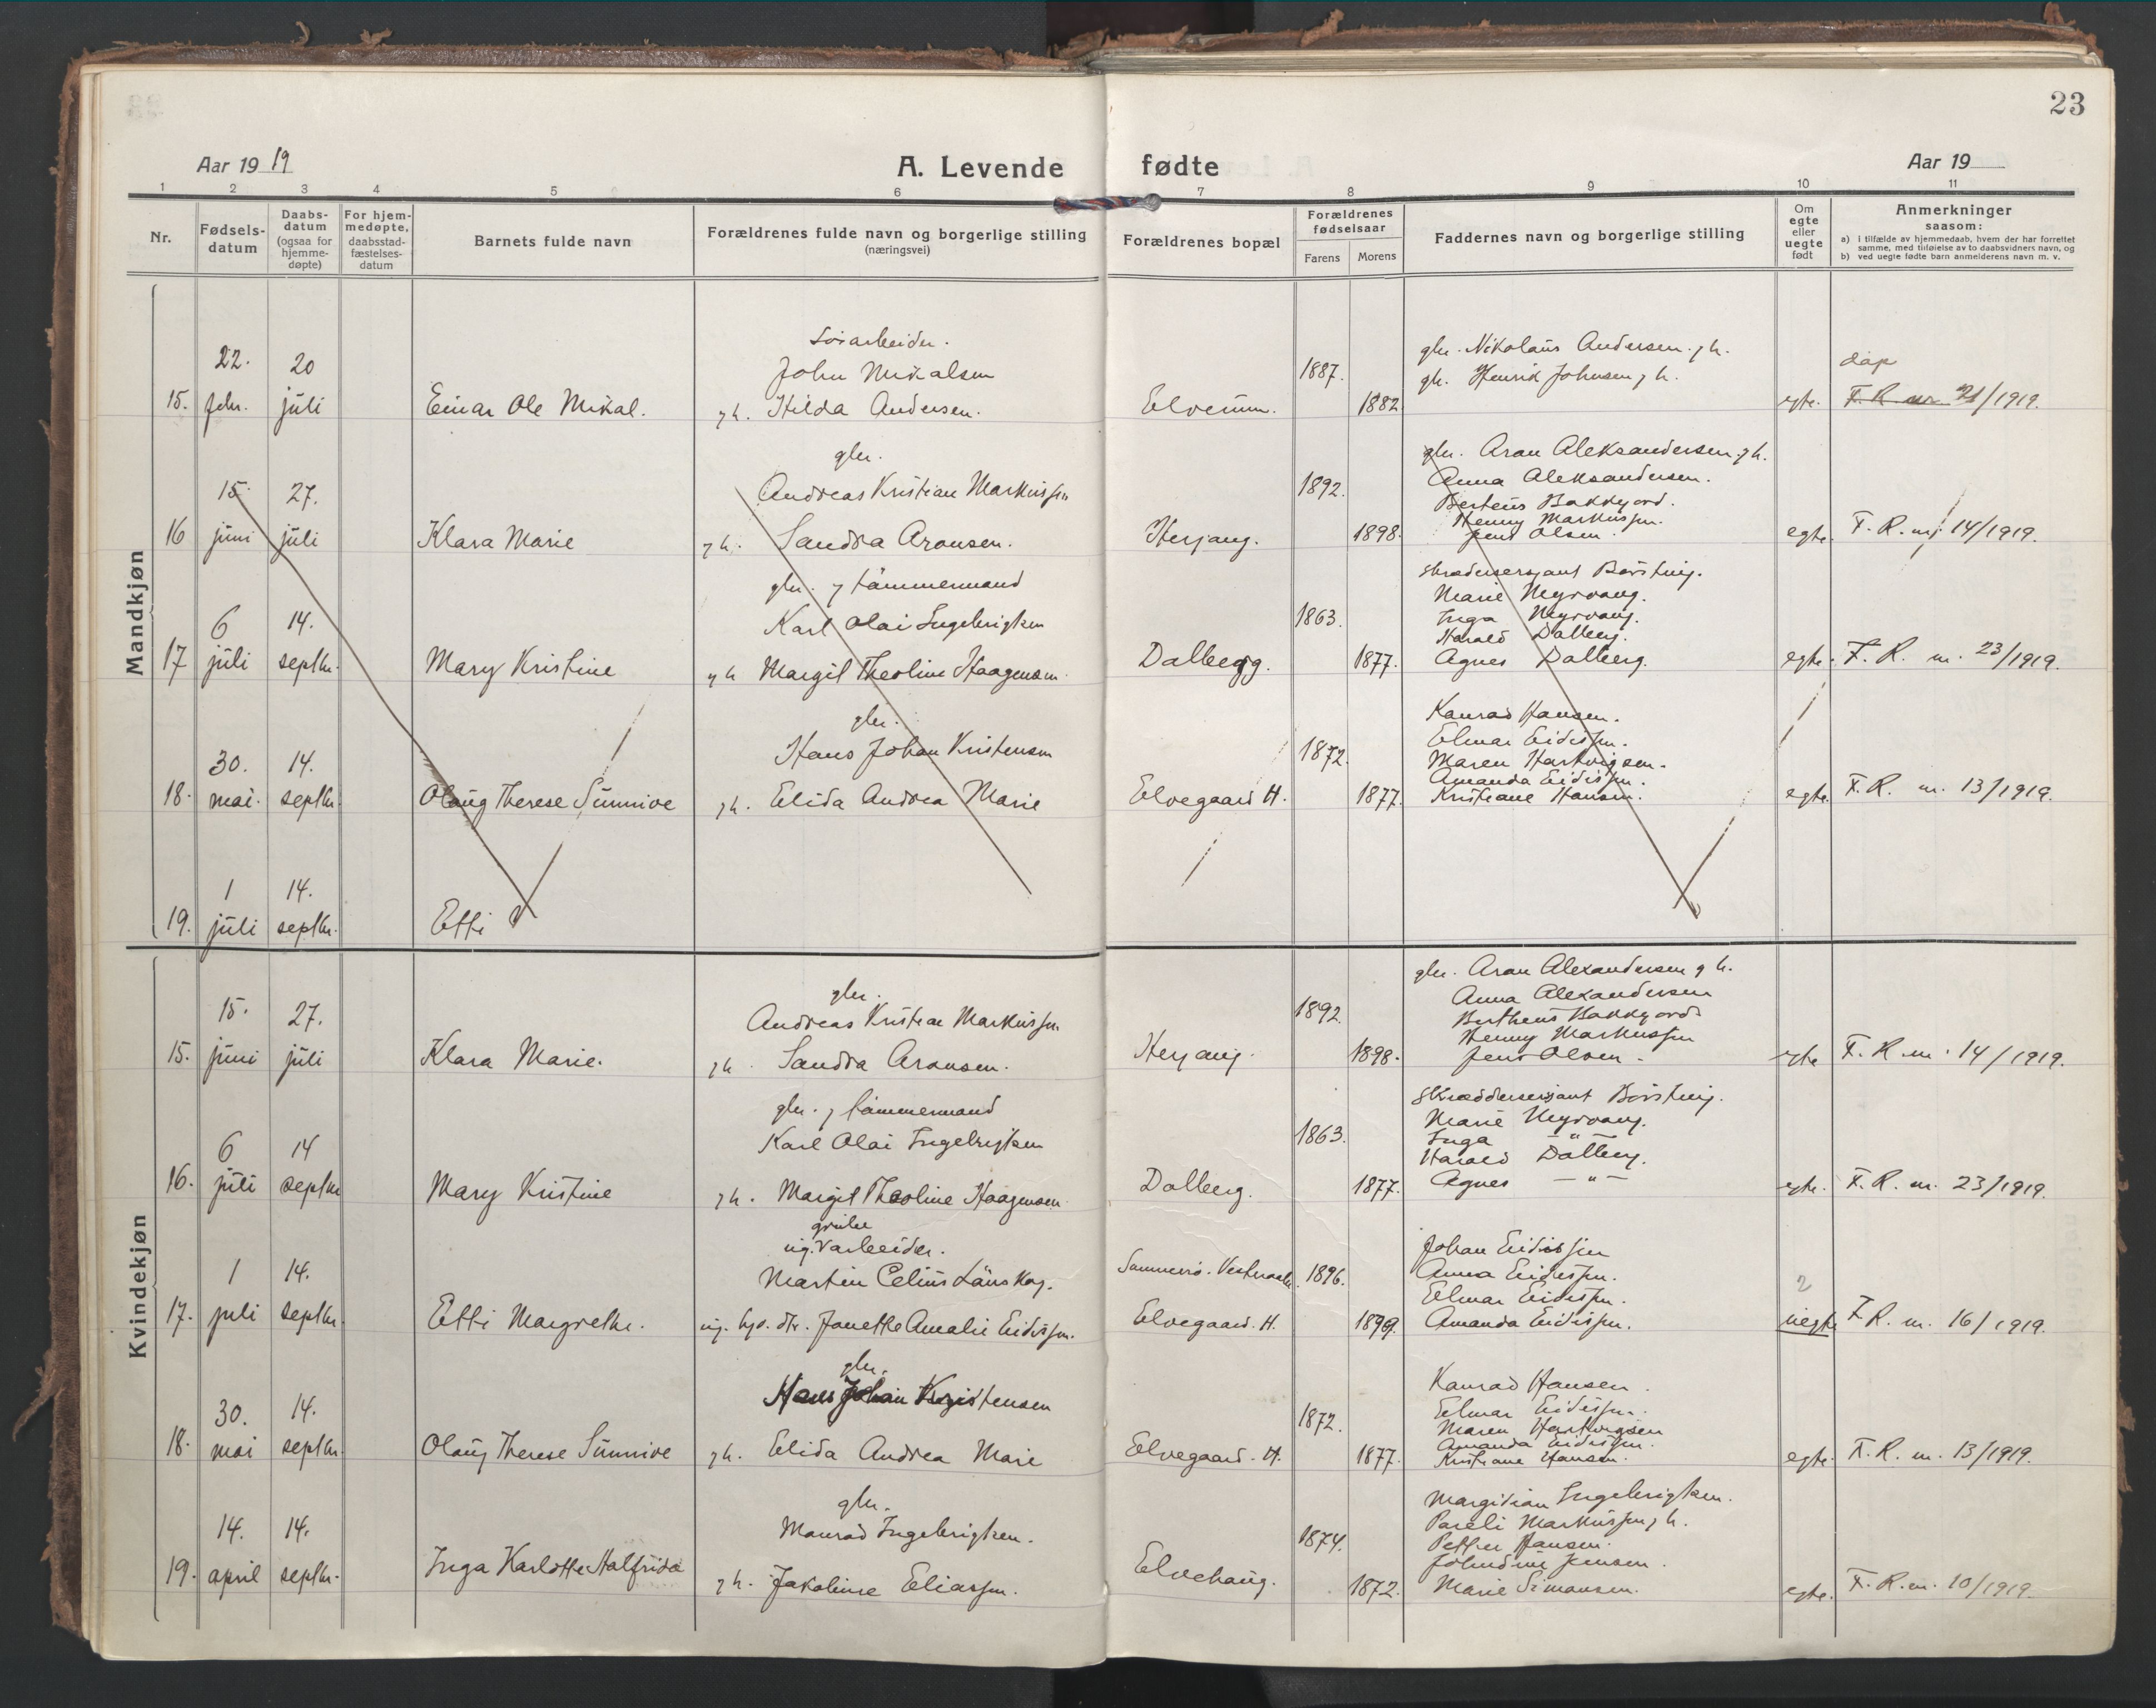 23
Aar 1919
A. Levende fødte
Aar 19
1 2 3 4 5 6 7 8 9 10 11
Nr.
Fødsels-
datum
Daabs-
datum
(ogsaa for
hjemme-
døpte)
For hjem-
medøpte,
daabsstad-
fæstelses-
datum
Barnets fulde navn
Forældrenes fulde navn og borgerlige stilling
(næringsvei)
Forældrenes bopæl
Forældrenes
fødselsaar
Farens Morens
Faddernes navn og borgerlige stilling
Om
egte
eller
uegte
født
Anmerkninger
saasom:
a) i tilfælde av hjemmedaab, hvem der har forrettet
samme, med tilføielse av to daabsvidners navn, og
b) ved uegte fødte barn anmelderens navn m. v.
Mandkjøn
15. 22. febr. 20 juli
Einar Ole Mikal.
Løsarbeider.
John Mikalsen
g h. Hilda Andersen.
Elvemm.
1887. 1882
gbr. Nikolaus Andersen g h.
gb. Henrik Johnsen g h.
egte.
dåp
F. R. nr 21/1919.
16 15 juni 27. juli
Klara Marie
gbr.
Andreas Kristian Markussen
g h. Sandra Aronsen.
Herjang.
1892. 1898.
gbr. Aron Aleksandersen g h.
Anna Aleksandersen.
Berteus Bakkejord.
Henny Markussen.
Jens Olsen.
egte.
F. R. nr. 14/1919.
17 6 juli 14. septbr.
Mary Kristine
gbr. g tømmermand
Karl Olai Ingebrigtsen
g h Margit Theoline Haagensen.
Dalberg.
1863. 1877.
Skræddersersjant Børsting.
Marie Myrvang.
Inga Myrvang.
Harald Dalberg.
Agnes Dalberg.
egte.
F. R. nr. 23/1919.
18. 30. mai. 14. septbr.
Olaug Therese Sunnive
gbr.
Hans Johan Kristensen
g h. Elida Andrea Marie
Elvegaard H.
1872. 1877.
Konrad Hansen.
Elmar Eidissen.
Maren Hartvigsen.
Amanda Eidissen.
Kristiane Hansen.
egte.
F. R. nr. 13/1919.
19. 1 juli 14. septbr.
Etti
Kvindekjøn
15. 15. juni 27. juli
Klara Marie.
gbr.
Andreas Kristian Markussen
g h. Sandra Aronsen.
Herjang.
1892. 1898.
gbr. Aron Alexandersen g h.
Anna Alexandersen
Bertheus Bakkejord
Henny Markussen
Jens Olsen.
egte
F. R. nr. 14/1919.
16. 6 juli 14 septbr
Mary Kristine
gbr. g tømmermand
Karl Olai Ingebrigtsen
g h. Margit Theoline Haagensen.
Dalberg.
1863. 1877.
Skræddersersjant Børsting.
Marie Myrvang.
Inga — " —
Harald Dalberg.
Agnes — " —
egte.
F. R. nr. 23/1919.
17. 1 juli 14. septbr.
Etti Margrethe.
grube
ug. varbeider.
Martin Celius Lånskog.
ug. hjv. dtr. Janette Amalie Eidissen.
Sommerø. Vesteraalen.
Elvegaard. H.
1896. 1899.
Johan Eidissen
Anna Eidissen.
Elmar Eidissen.
Amanda Eidissen.
2
uegte
F. R. nr. 16/1919.
18. 30. mai 14. septbr.
Olaug Therese Sunnive
gbr.
Hans Johan Kristensen
g h. Elida Andrea Marie
Elvegaard. H.
1872. 1877.
Konrad Hansen.
Elmar Eidissen.
Maren Hartvigsen
Amanda Eidissen.
Kristiane Hansen.
egte.
F. R. nr. 13/1919.
19. 14. april 14. septbr.
Inga Karlotte Halfrida
gbr.
Monrad Ingebrigtsen.
g h. Jakobine Eliassen.
Elvehaug.
1874. 1872.
Margidian Ingebrigtsen.
Pareli Markussen g h.
Petter Hansen.
Johndine Jensen.
Marie Simonsen.
egte.
F. R. nr. 10/1919.